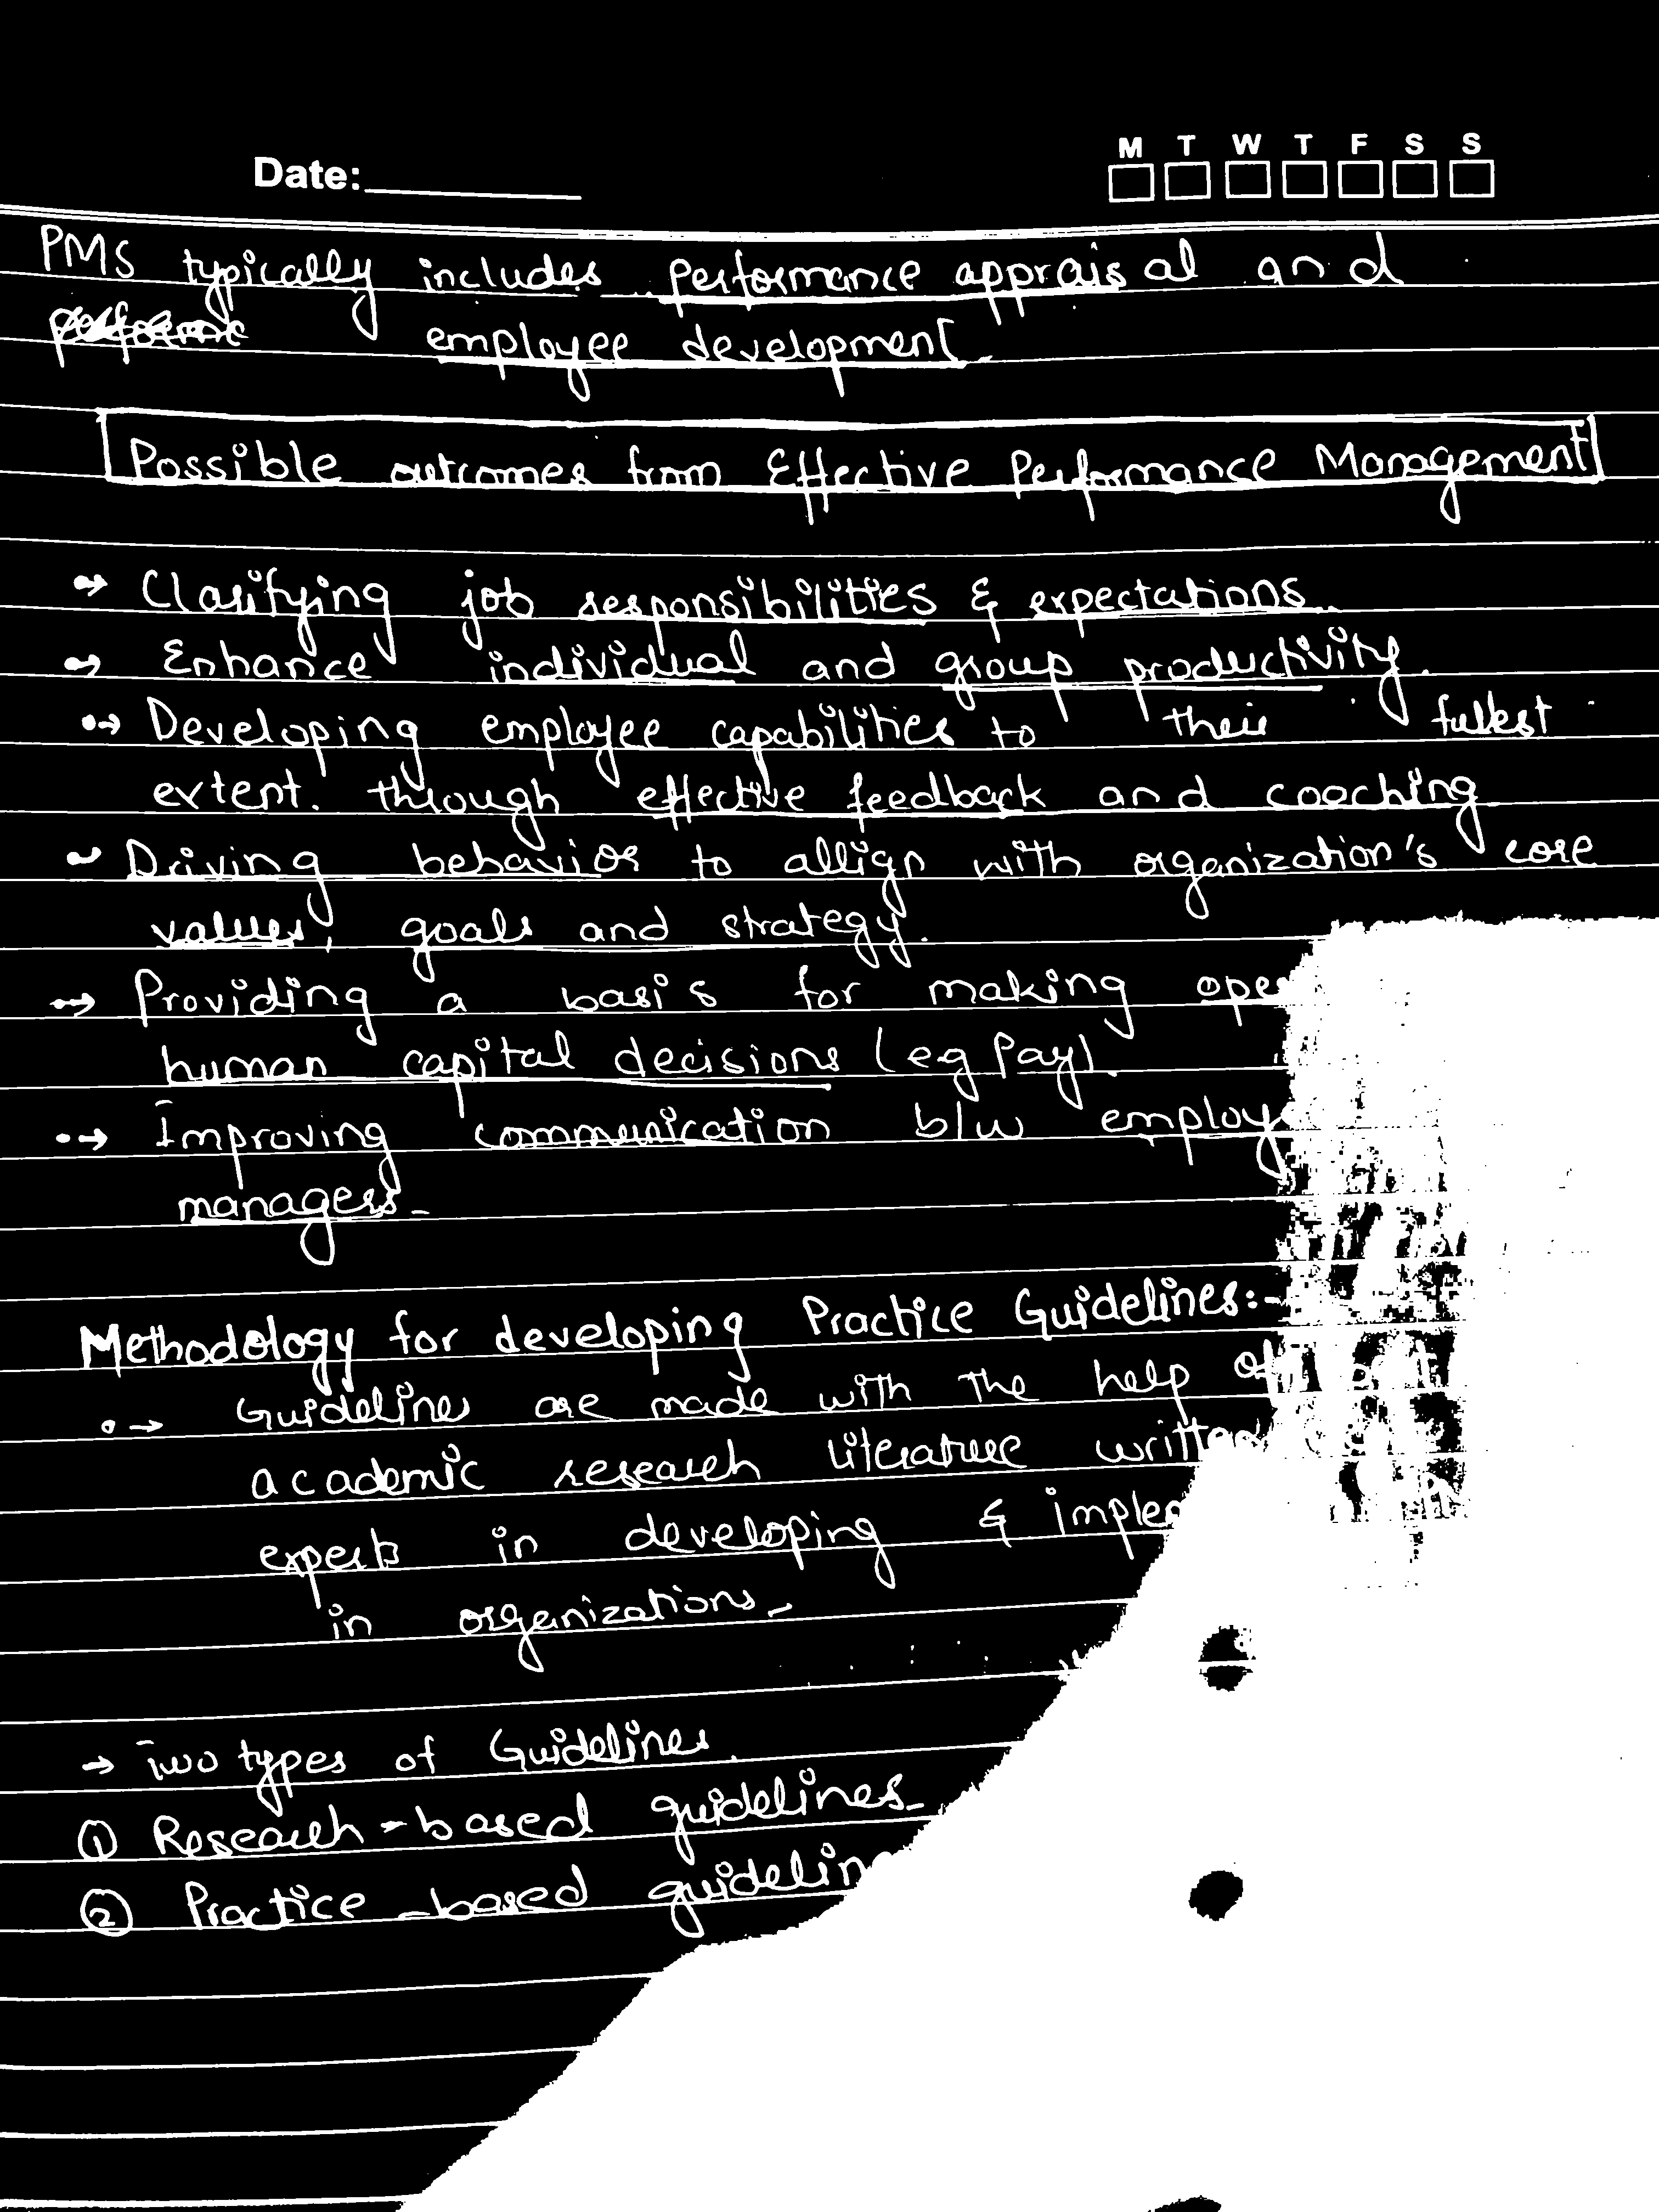 Date:
M T W T F S S
PMS typically includes performance appraisal and
employee development.
Possible outcomes from Effective Performance Management
→ Clarifying job responsibilities & expectations.
→ Enhance individual and group productivity.
→ Developing employee capabilities to their fullest
extent. through effective feedback and coaching
Driving behavior to allign with organization's core
values, goals and strategy.
→ Providing a basis for making
human capital decisions (eg Pay).
→ Improving communication b/w
managers.
Methodology for developing Practice Guidelines:-
→ Guidelines are made with the help of
academic research literature written
experts in developing &
in organizations.
→ Two types of Guidelines.
① Research-based guidelines.
② Practice-based